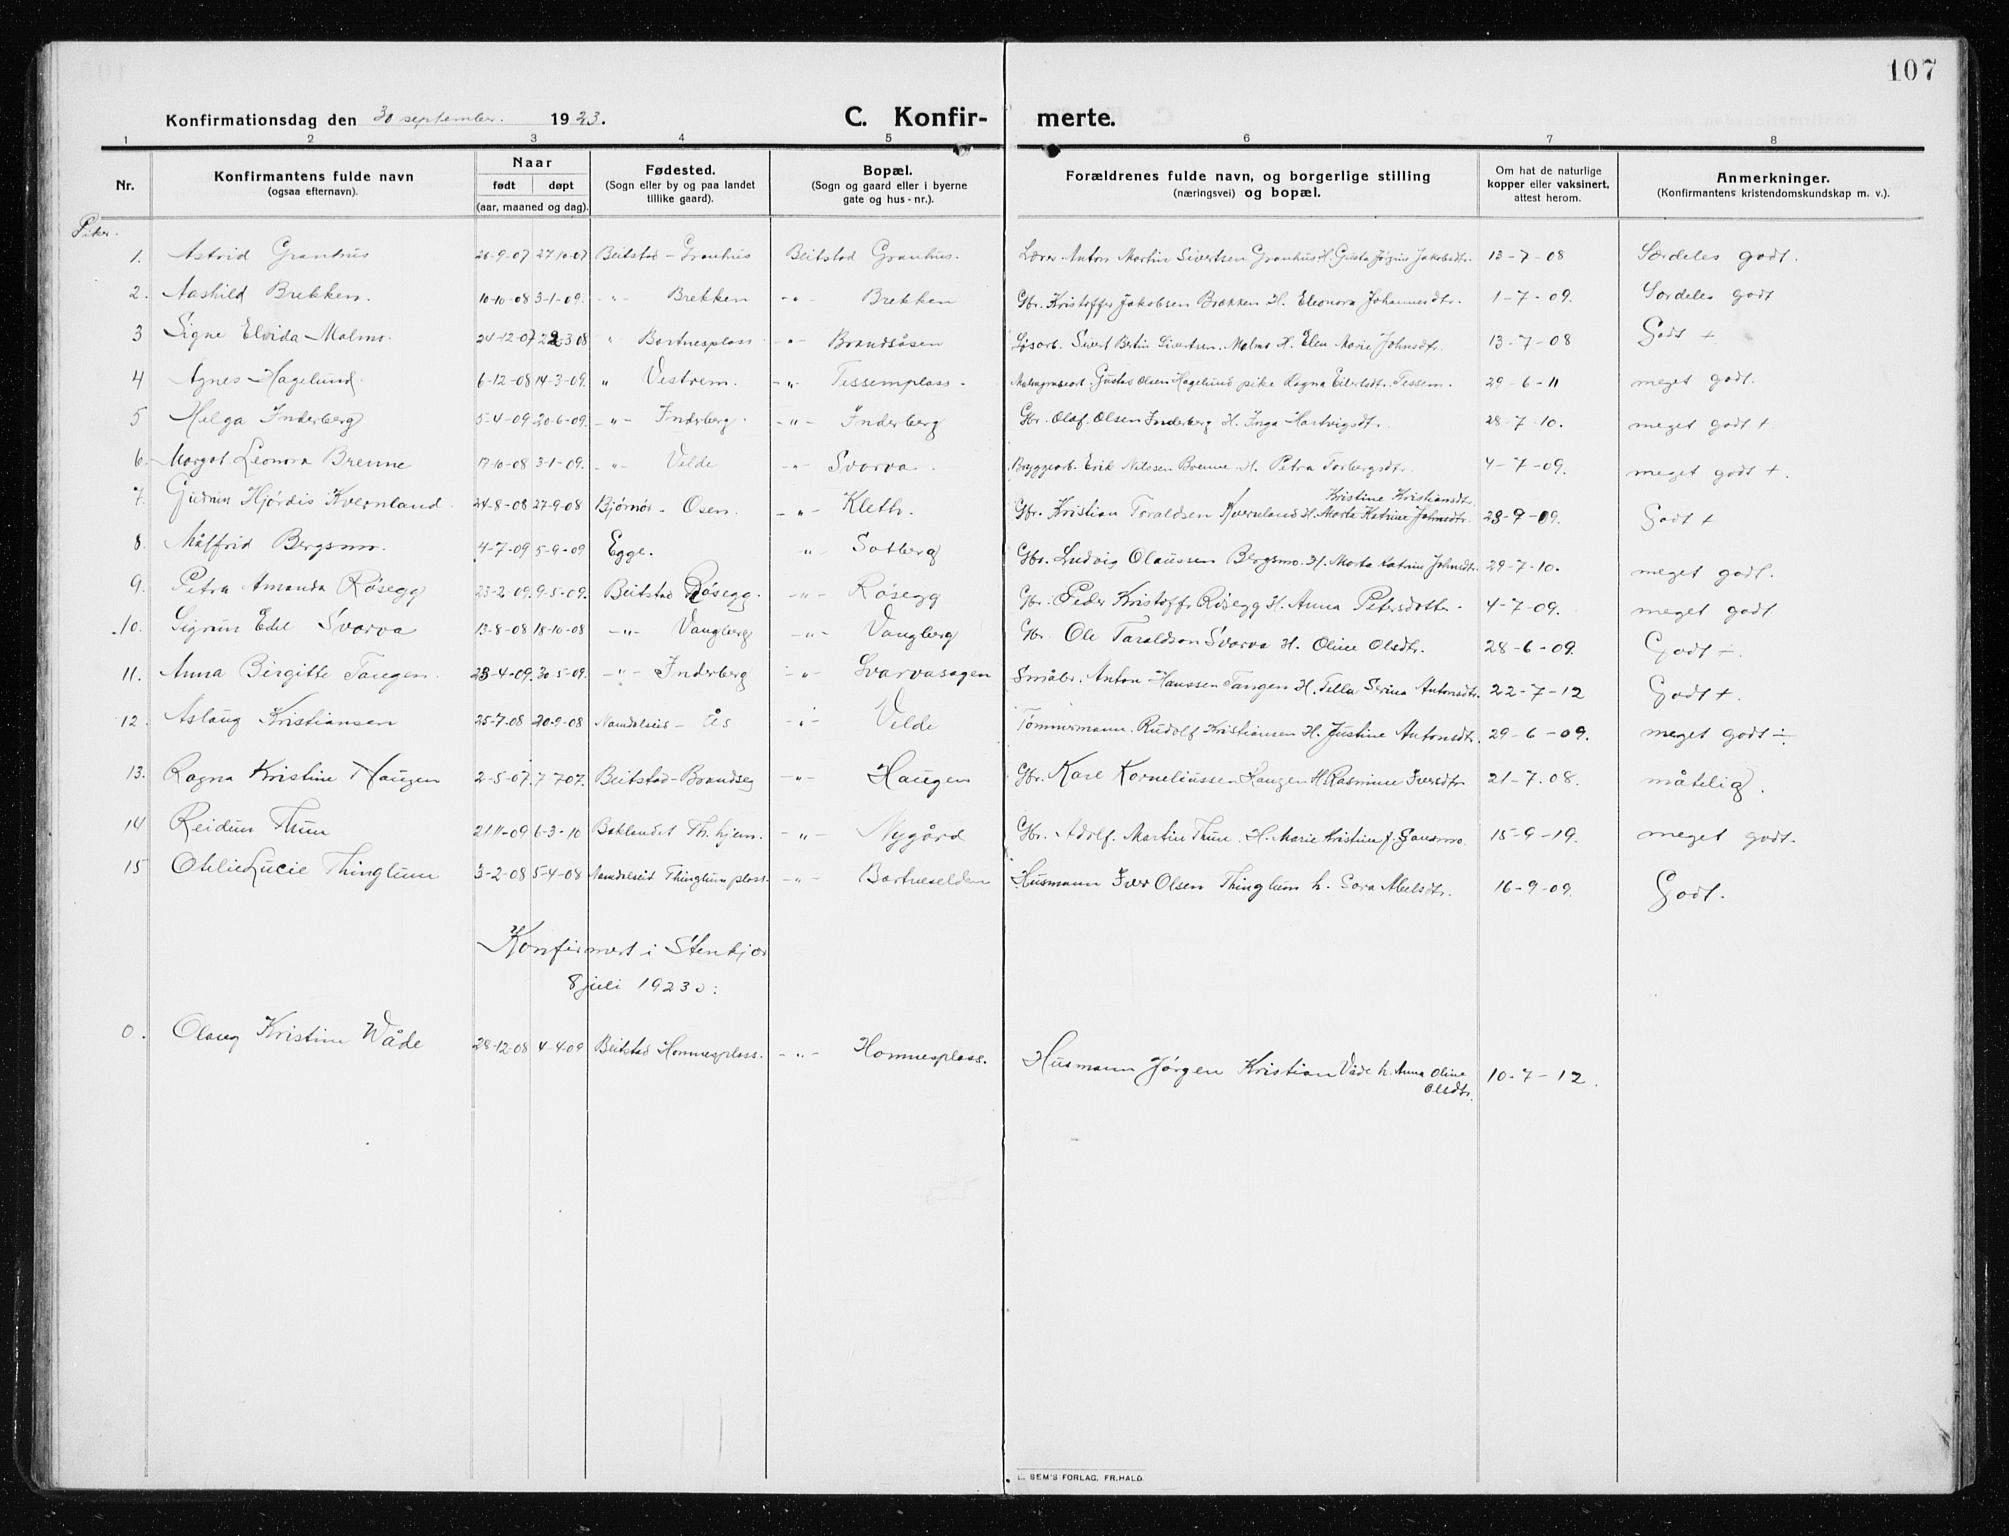 107
Konfirmationsdag den 30 september. 1923. C. Konfir- merte.
1 2 3 4 5 6 7 8
Nr. Konfirmantens fulde navn (ogsaa efternavn). Naar født døpt (aar, maaned og dag). Fødested. (Sogn eller by og paa landet tillike gaard). Bopæl. (Sogn og gaard eller i byerne gate og hus-nr.). Forældrenes fulde navn, og borgerlige stilling (næringsvei) og bopæl. Om hat de naturlige kopper eller vaksinert, attest herom. Anmerkninger. (Konfirmantens kristendomskundskap m. v.).
Piker.
1. Astrid Granhus 26-9-07 27-10-07 Beitstad - Granhus Beitstad Granhus. Lærer Anton Martin Sivertsen Granhus H. Gusta Jakobsdtr. 13-7-08 Særdeles godt.
2. Aashild Brekken. 10-10-08 3-1-09. -"- Brekken -"- Brekken Gbr. Kristoffer Jakobsen Brækken H. Eleonora Johannesdtr. 1-7-09. Særdeles godt
3 Signe Elvida Malmo. 24-12-07 22-3 08 " Bartnesplass -"- Brandsåsen Løsarb. Sivert Bertin Sivertsen Malmo H. Elen Marie Johnsdtr. 13-7-08 Godt +
4 Agnes Hagelund. 6-12-08 14-3-09. " Vestrem. -"- Tessemplass. Gustav Olsen Hagelund pike Ragna Eilertsdtr. Tessem. 29-6-11 meget godt.
5 Helga Inderberg 5-4-09 20-6-09. -"- Inderberg. -"- Inderberg Gbr. Olaf Olsen Inderberg H. Inga Hartvigsdt. 28-7-10. meget godt +
6. Margot Leonora Brenne 17-10-08 3-1-09. -"- Velde -"- Svarva. Bryggearb. Erik Nilssen Brenne. H. Petra Torbergsdtr. 4-7-09. meget godt +
7. Gudrun Hjørdis Kvernland. 24-8-08 27-9-08 Bjørnør - Osen. -"- Kleth. Gbr. Kristian Toraldsen Kverneland H. Marta Katrine Johnsdtr. Kristine Kristiansdtr. 23-9-09. Godt +
8. Målfrid Bergsmo. 4-7-09 5-9-09 Egge. "- Solberg Gbr. Ludvig Olaussen Bergsmo. H. Marta Katrine Johnsdtr. 29-7-10. meget godt.
9. Petra Amanda Røsegg 23-2-09. 9-5-09. Beitstad Røsegg. -"- Røsegg Gbr. Peder Kristoffr. Røsegg H. Anna Petersdotter. 4-7-09. meget godt
10. Sigrun Edel Svarva 13-8-08 18-10-08 -"- Vangberg -"- Vangberg Gbr. Ole Taraldson Svarva H. Oline Olsdtr. 28-6-09. Godt ÷.
11. Anna Birgitte Tangen. 23-4-09. 30-5-09. -"- Inderberg -"- Svarvasagen Småbr. Anton Hanssen Tangen H. Tella Serina Antonsdtr. 22-7-12 Godt +.
12. Aslaug Kristiansen 25-7-08 20-9-08 Namdalseid - Ås -"- Velde Tømmermann. Rudolf Kristiansen H. Justine Antonsdtr. 29-6-09. meget godt ÷.
13. Ragna Kristine Haugen 2-5-07. 7-7 07. Beitstad - Brandseg -"- Haugen Gbr. Karl Korneliussen Haugen H. Rasmine Iversdtr 21-7.08. måtelig.
14 Reidun Thun 21-11-09 6-3-10 Baklandet Th.hjem. -"- Nygård Gbr. Adolf Martin Thun. H. Marie Kristine J. Gausmo. 15-9-19. meget godt.
15 Otelie Lucie Thinglum 3-2-08 5-4-08 Namdalseid Thinglumplass. -"- Bartneselden Husmann Iver Olsen Thinglum h. Sara Abelsdtr. 16-9-09. Godt.
Konfirmert i Stenkjær
8 juli 1923:
0. Olaug Kristine Wåde 28-12-08 4-4-09 Beitstad Homnesplass. -"- Homnesplass. Husmann Jørgen Kristian Våde h. Anna Oline Olsdtr. 10-7-12.
L. SEM'S FORLAG, FR.HALD.